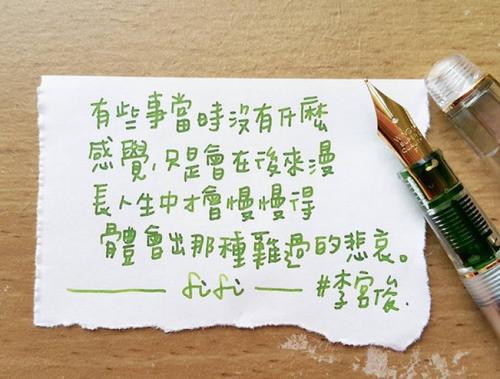 有些事當時沒有什麼
感覺,只是會在後來漫
長人生中才會慢慢得
體會出那種難過的悲哀。
fifi #李宮俊.